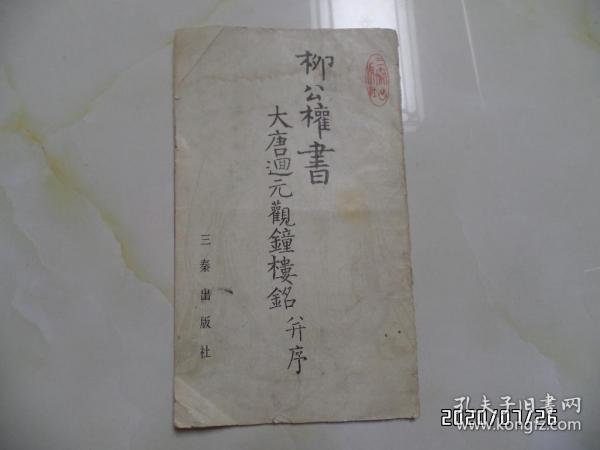 柳公權書
大唐迴元觀鐘樓銘并序
三秦出版社
2020/07/26
孔夫子旧書网
www.kongfz.com